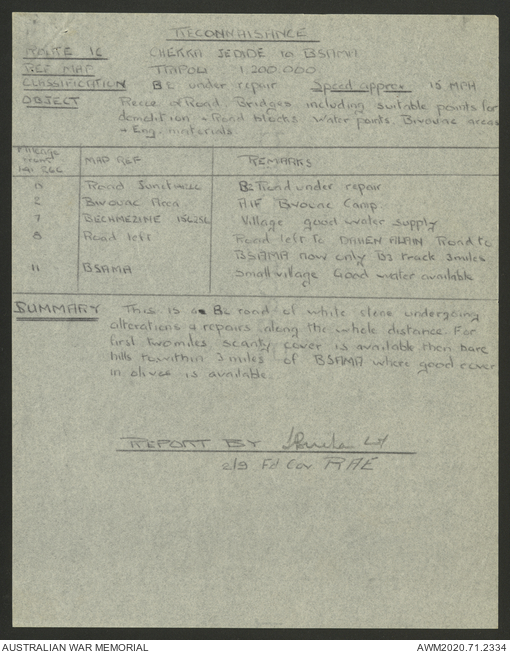 RECONNAISANCE
ROUTE 16 CHEKKA JEDIDE to BSAMA
REF MAP TRIPOLI 1.200.000
CLASSIFICATION B2 under repair Speed approx 15 MPH
OBJECT Recce of Road. Bridges including suitable points for
demolition + Road blocks Water points. Bivouac areas
+ Eng. materials.
Mileage from MAP REF REMARKS
0 Road Junction B2 Road under repair
2 Bivouac Area AIF Bivouac Camp.
7 BECHMEZINE Village good water supply
8 Road left Road left to Road to
BSAMA now only B3 track 3 miles
11 BSAMA Small village Good water available
SUMMARY This is a B2 road of white stone undergoing
alterations & repairs along the whole distance. For
first two miles scanty cover is available then bare
hills to within 3 miles of BSAMA where good cover
in olives is available.
REPORT BY Lt
2/9 Fd Coy RAE
AUSTRALIAN WAR MEMORIAL AWM2020.71.2334